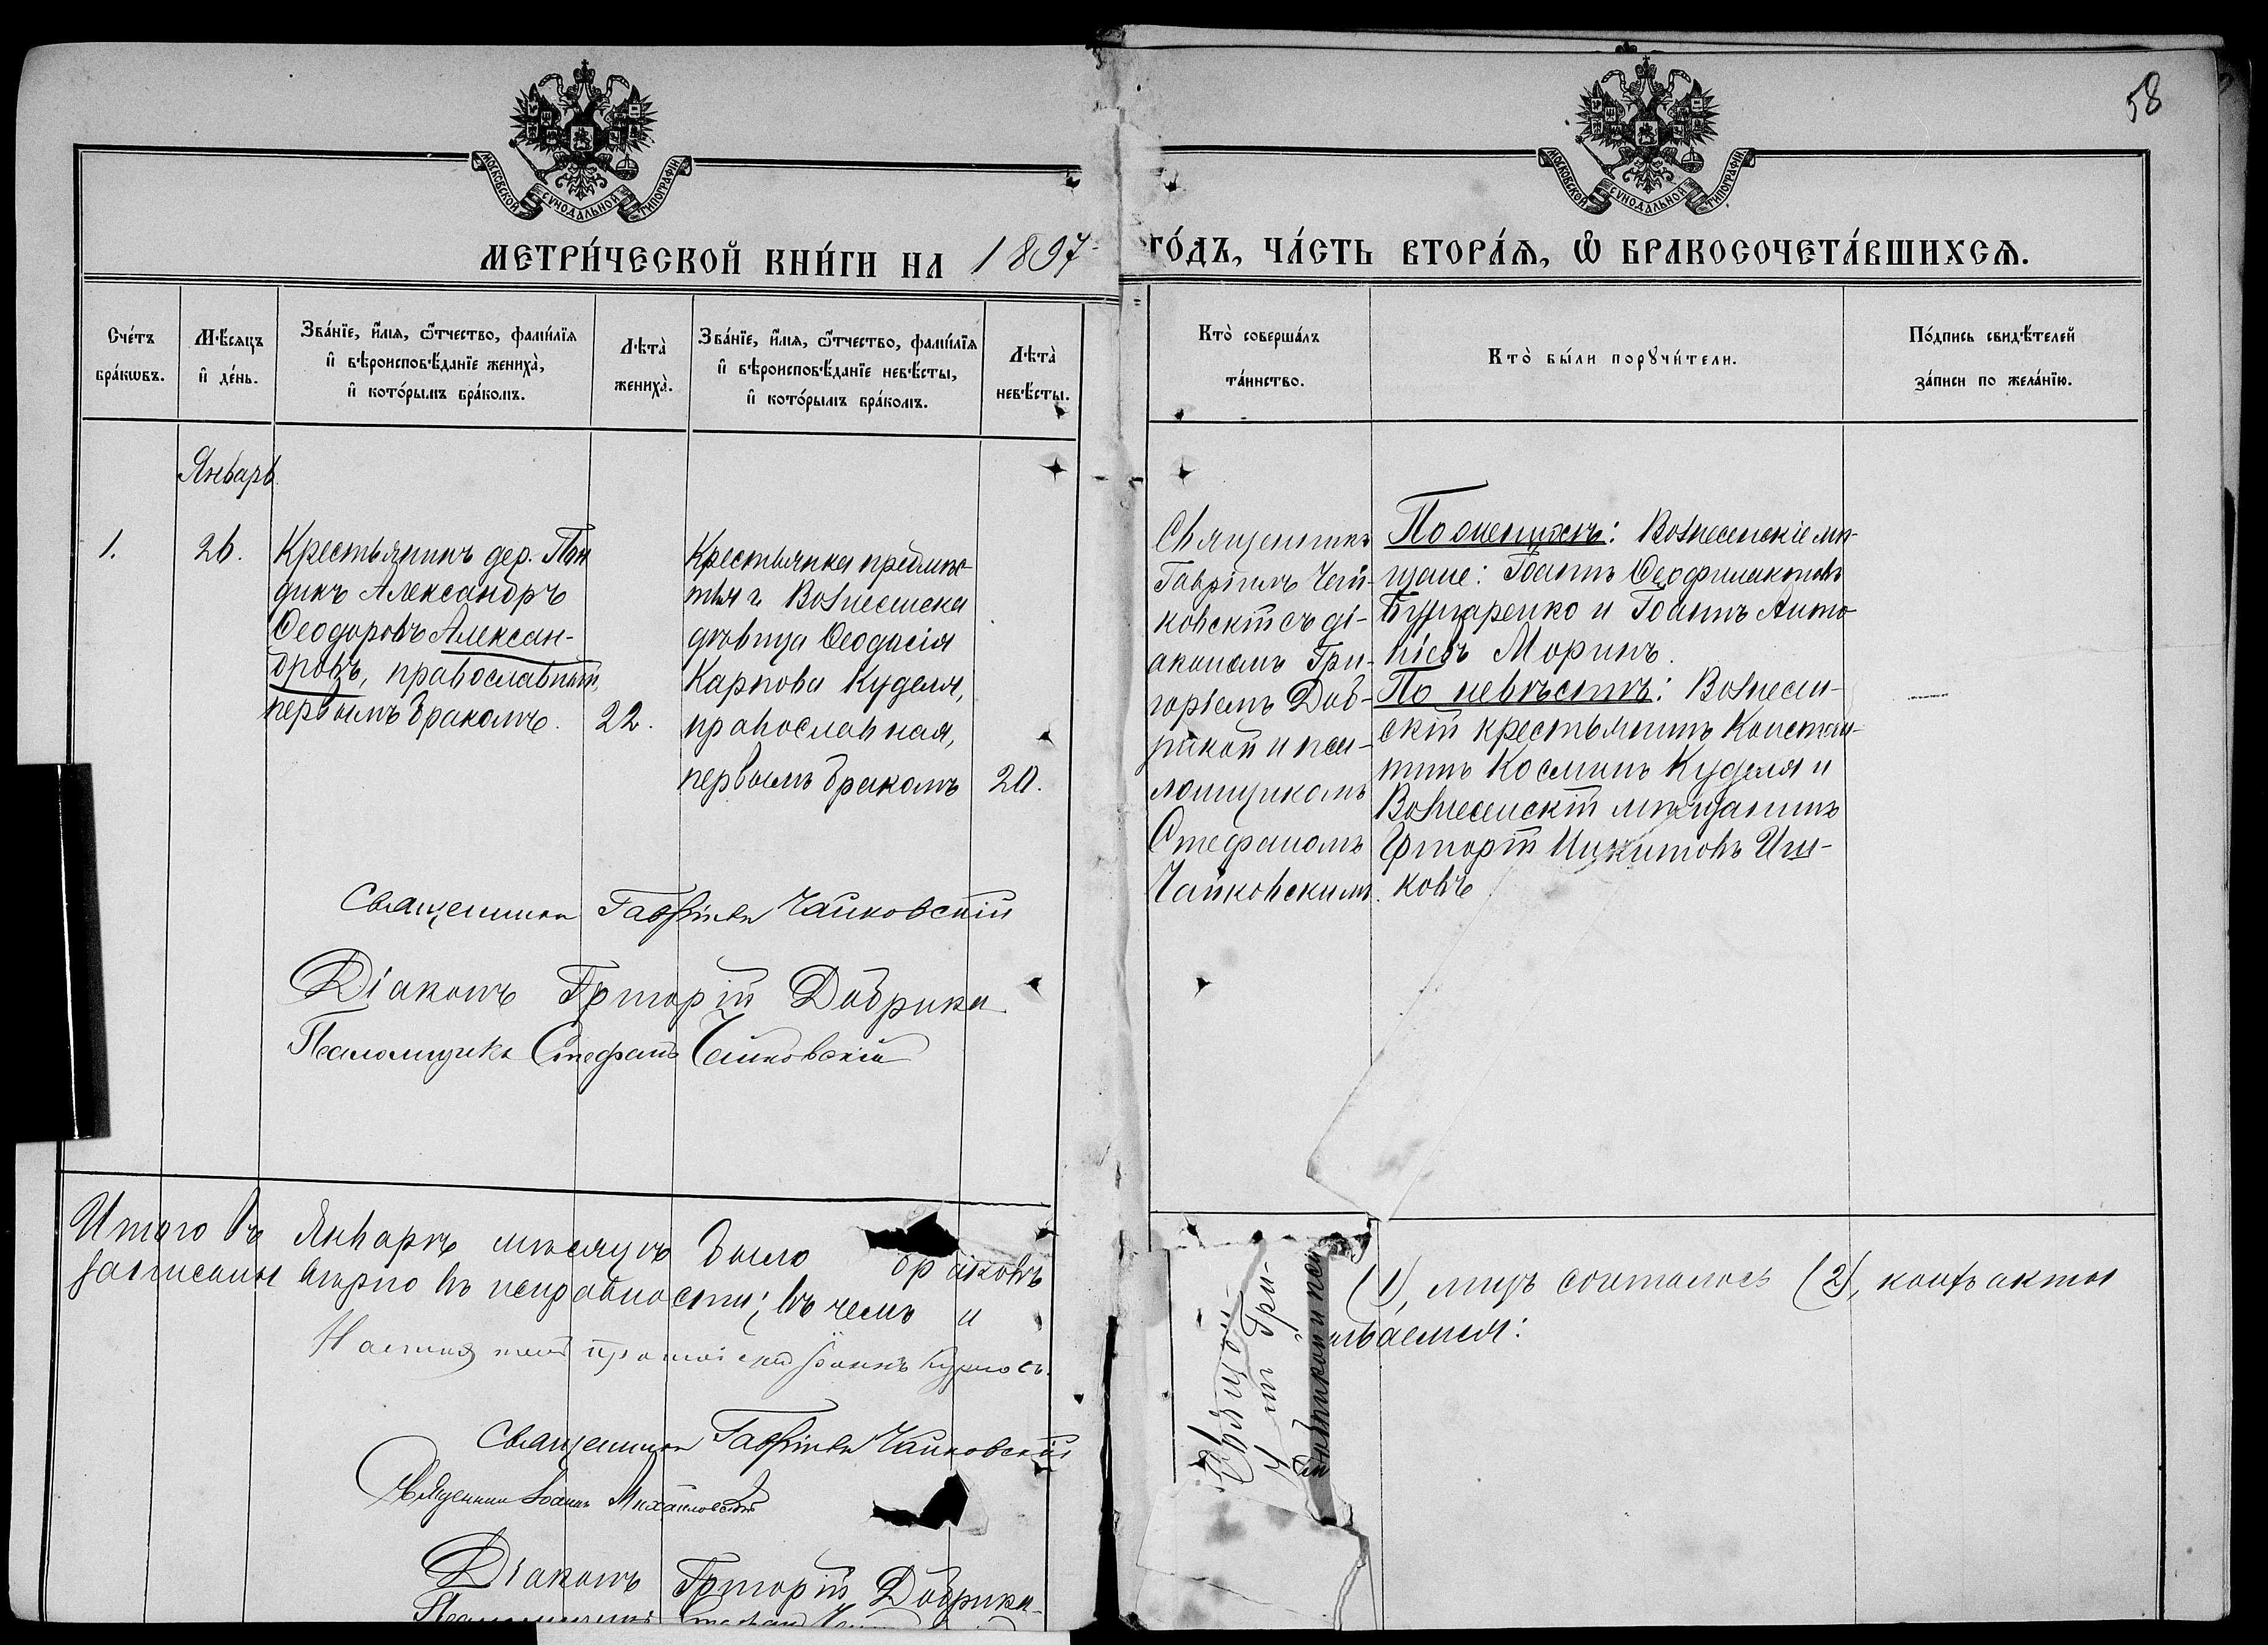 58
МОСКОВСКОЙ СѴНОДАЛЬНОЙ ТИПОГРАФІИ
МОСКОВСКОЙ СѴНОДАЛЬНОЙ ТИПОГРАФІИ
МЕТРИ́ЧЕСКОЙ КНИ́ГИ НА 1897
ГО́ДЪ, ЧА́СТЬ ВТОРА́Ѧ, Ѽ БРАКОСОЧЕТА́ВШИХСѦ.
Сче́тъ
бра́кѡвъ.
Мѣ́сяцъ
и҆ де́нь.
Зва́нїе, и҆́мя, ѻ҆́тчество, фами́лїя
и҆ вѣроисповѣ́данїе жениха̀,
и҆ кото́рымъ бра́комъ.
Лѣта̀
жениха̀.
Зва́нїе, и҆́мя, ѻ҆́тчество, фами́лїя
и҆ вѣроисповѣ́данїе невѣ́сты,
и҆ кото́рымъ бра́комъ.
Лѣта̀
невѣ́сты.
Кто̀ соверша́лъ
та́инство.
Кто̀ бы́ли порꙋчи́тели.
По́дпись свидѣ́телей
за́писи по жела́нїю.
Январь.
1.
26.
Крестьянинъ дер.
дикъ Александръ
Ѳеодоровъ Алексан-
дровъ, православный,
первымъ бракомъ.
22.
Крестьянка предмѣс-
тья г. Вознесенска
дѣвица Ѳеодосія
Карпова Куделя,
православная,
первымъ бракомъ
20.
Священникъ
Гавріилъ Чай-
ковскій съ ді-
акономъ Гри-
горіемъ Доб-
рикой и пса-
ломщикомъ
Стефаномъ
Чайковскимъ.
По женихѣ: Вознесенскіе мѣ-
щане: Іоаннъ Ѳеофилактовъ
и Іоаннъ Анто-
ніевъ Моринъ.
По невѣстѣ: Вознесен-
скій крестьянинъ Констан-
тинъ Косминъ Куделя и
Вознесенскій мѣщанинъ
Григорій Никитовъ
ковъ
Священникъ Гавріилъ Чайковскій
Діаконъ Григорій Добрика
Псаломщикъ Стефанъ Чайковскій
Итого въ Январѣ мѣсяцѣ было браковъ
(1), лицъ сочталось (2), кои акты
записаны вѣрно въ исправности; въ чемъ и
ываемся:
Настоятель протоіерей Іоаннъ
Священникъ Гавріилъ Чайковскій
Священникъ Іоаннъ Михайловскій
Діаконъ Григорій Добрика
Священ
Гри-
рикой и пса